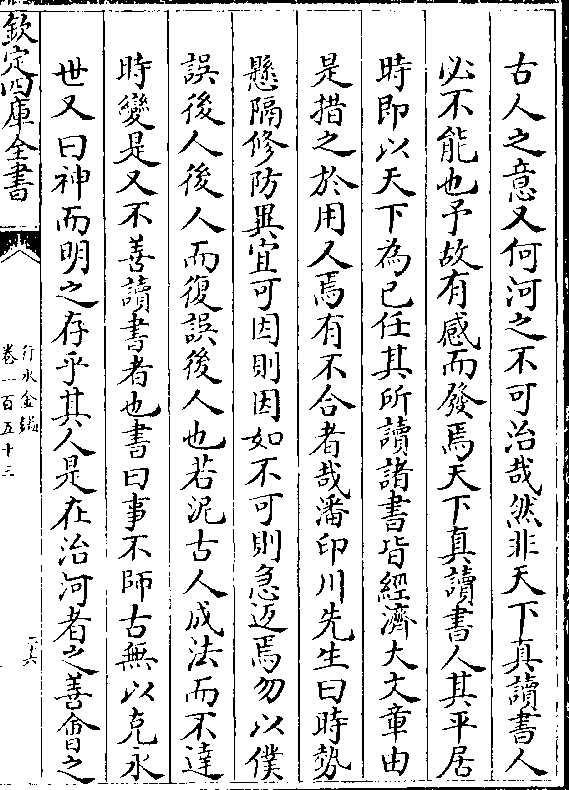 古人之意又何河之不可治哉然非天下真讀書人
必不能也予故有感而發焉天下真讀書人其平居
時即以天下為已任其所讀諸書皆經濟大文章由
是措之於用人焉有不合者哉潘印川先生曰時勢
懸隔修防異宜可因則因如不可則急返焉勿以僕
誤後人後人而復誤後人也若泥古人成法而不達
時變是又不善讀書者也書曰事不師古無以克永
世又曰神而明之存乎其人是在治河者之善會之
欽定四庫全書
行水金鑑
卷一百五十三
十六